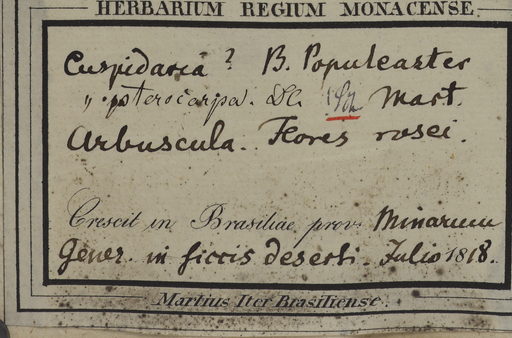 HERBARIUM REGIUM MONACENSE.
Cuspidaria? B. Populeaster
„ pterocarpa. DC. Mart.
Arbuscula. Flores rosei.
Crescit in Brasiliae prov. Minarum
Gener. in siccis deserti. Julio 1818.
Martius Iter Brasiliense.